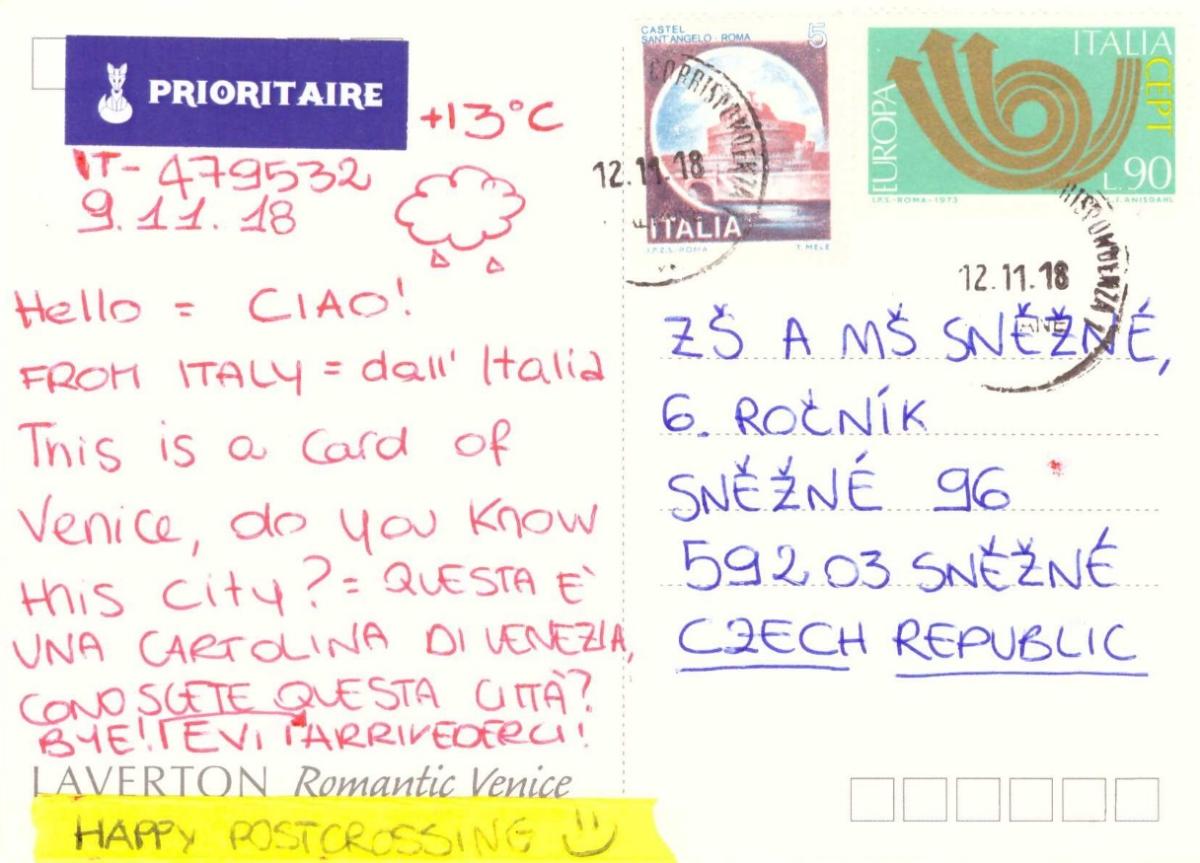 PRIORITAIRE
+13°C
IT-479532
9.11.18
Hello = CIAO!
FROM ITALY = dall' Italia
This is a card of
Venice, do you know
this city? = QUESTA È
UNA CARTOLINA DI VENEZIA,
CONOSCETE QUESTA CITTÀ?
BYE! EVI ARRIVEDERCI!
LAVERTON Romantic Venice
HAPPY POSTCROSSING
CASTEL
SANT'ANGELO - ROMA
5
ITALIA
I.P.Z.S. - ROMA T. MELE
CORRISPONDENZA
12.11.18
ITALIA
EUROPA
CEPT
L.90
I.P.S. - ROMA - 1973 L.F. ANISDAHL
12.11.18
ZŠ A MŠ SNĚŽNÉ,
6. ROČNÍK
SNĚŽNÉ 96
592 03 SNĚŽNÉ
CZECH REPUBLIC